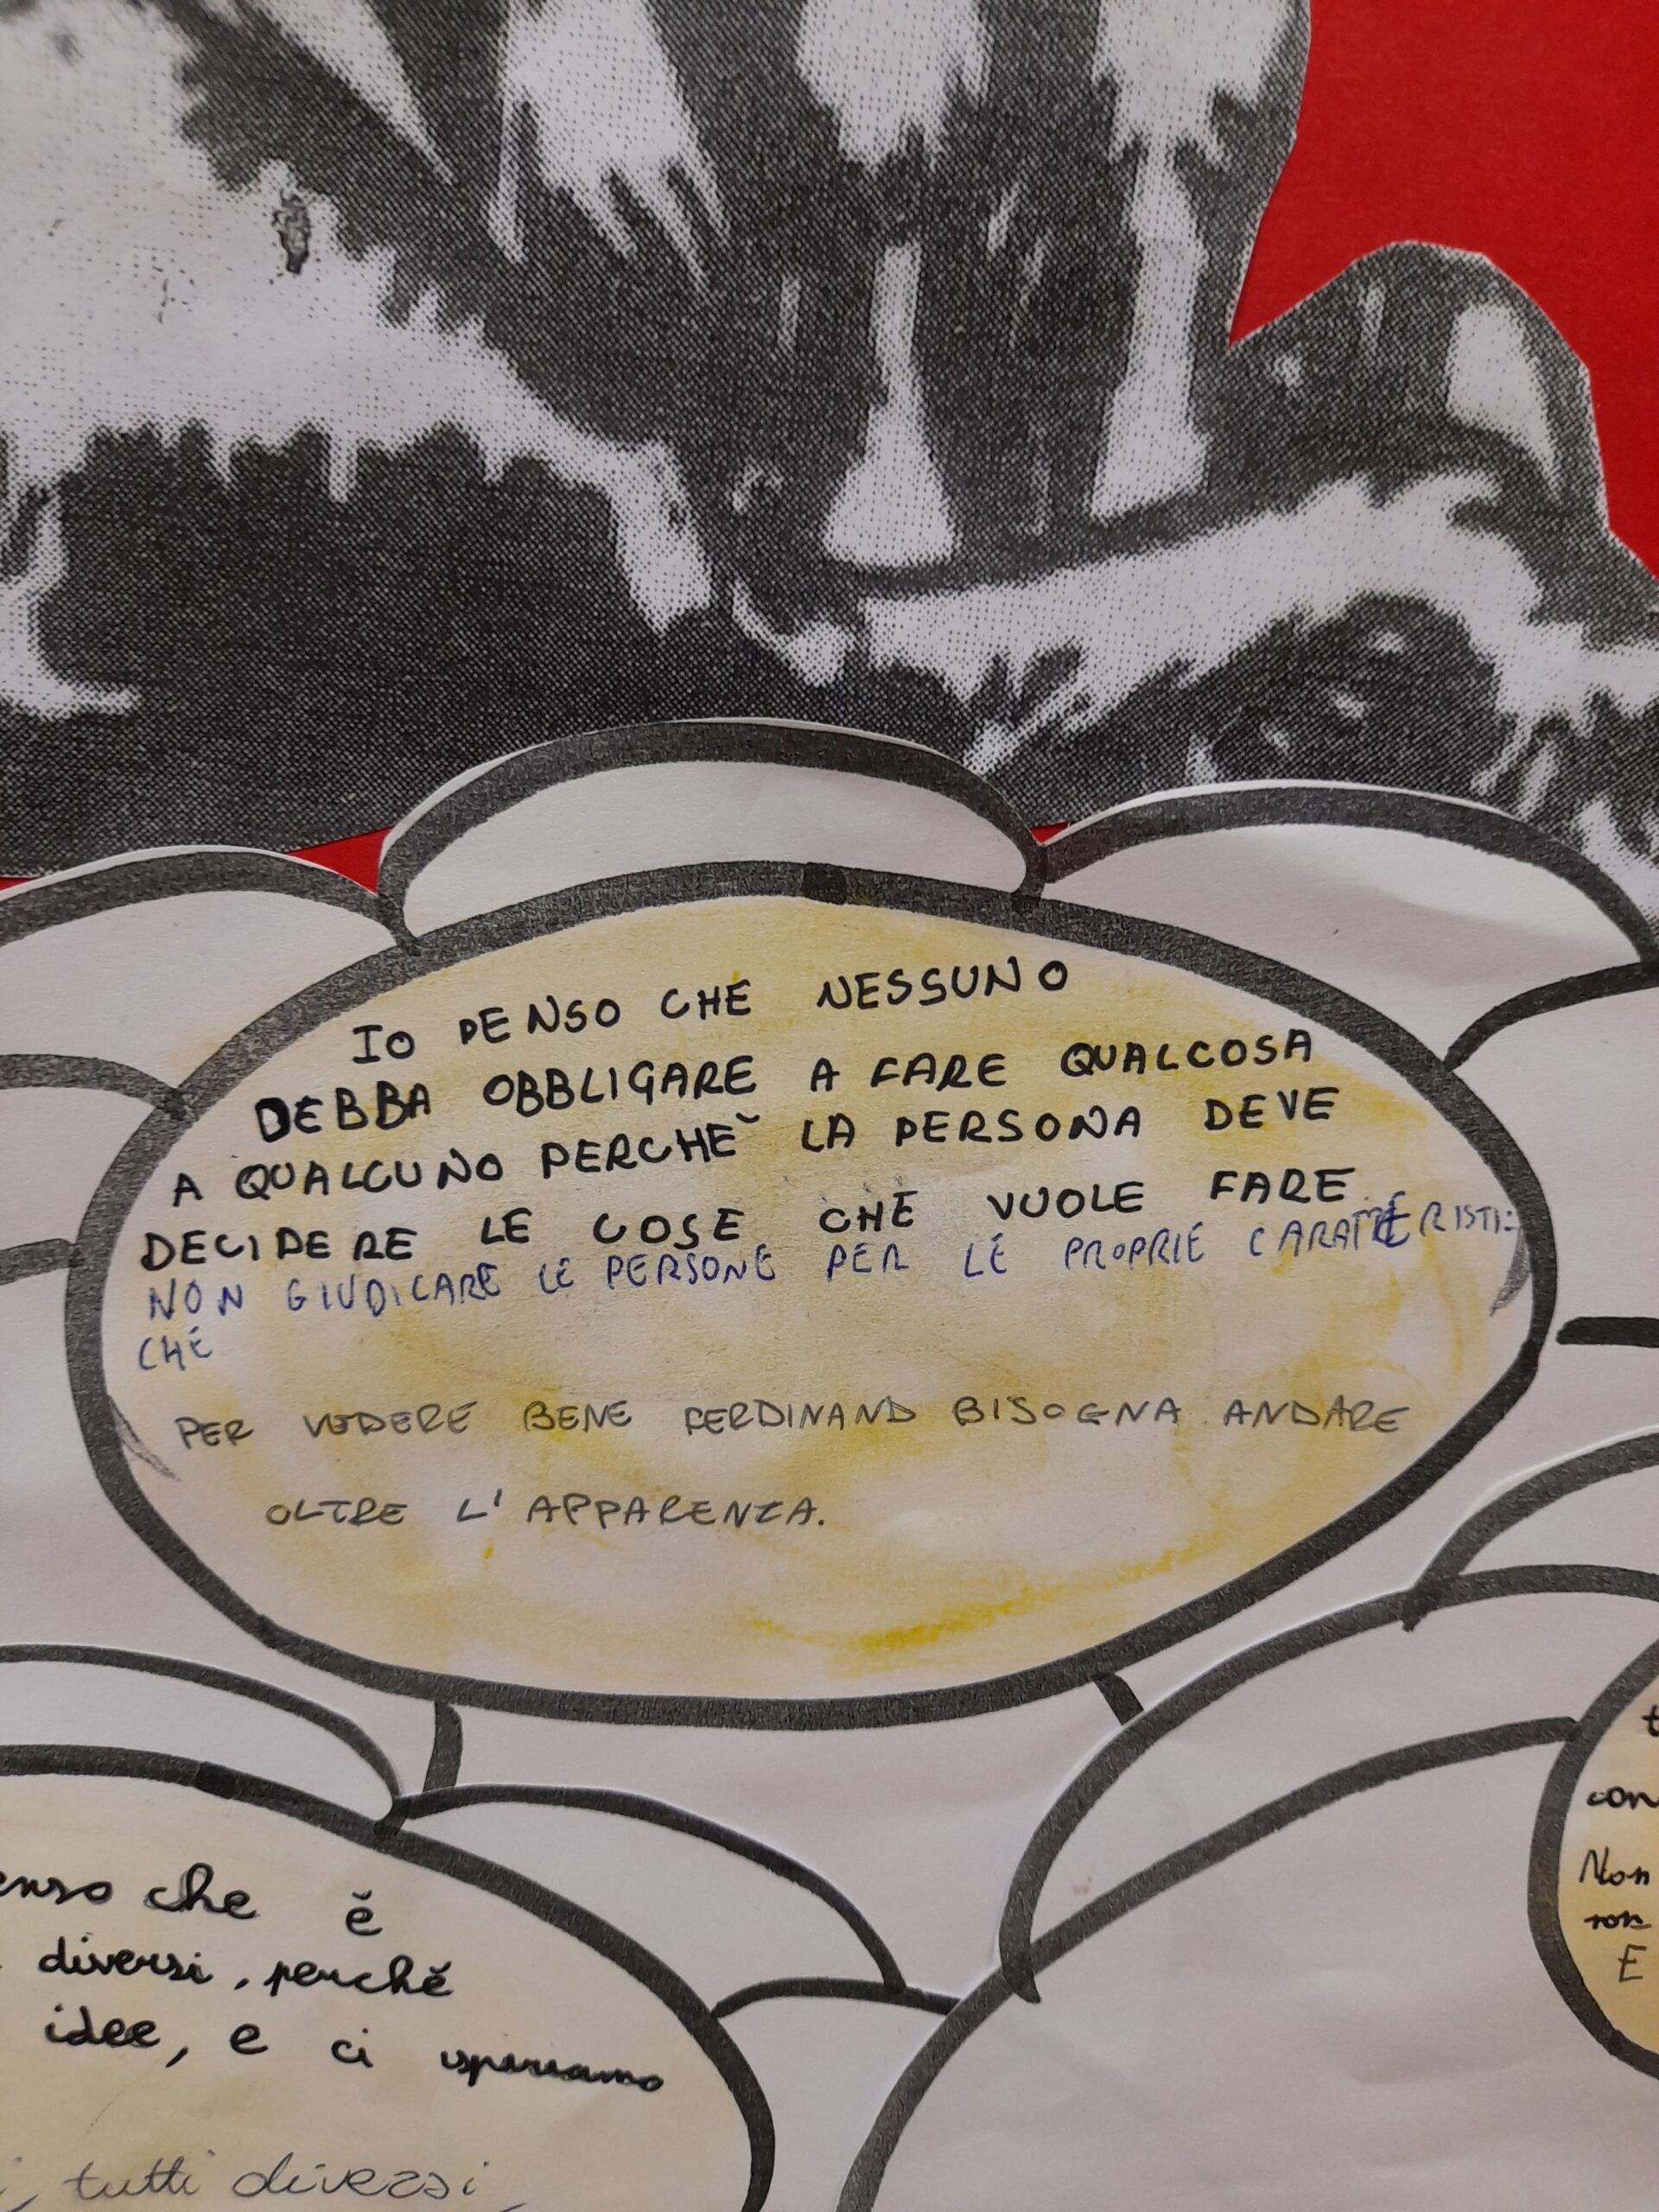 IO PENSO CHE NESSUNO
DEBBA OBBLIGARE A FARE QUALCOSA
A QUALCUNO PERCHĔ LA PERSONA DEVE
DECIDERE LE COSE CHE VUOLE FARE.
NON GIUDICARE LE PERSONE PER LE PROPRIE CARATTERISTI:
CHE
PER VEDERE BENE FERDINAND BISOGNA ANDARE
OLTRE L'APPARENZA.
che ĕ
diversi, perchĕ
idee, e ci
tutti diversi,
con
Non
non
E